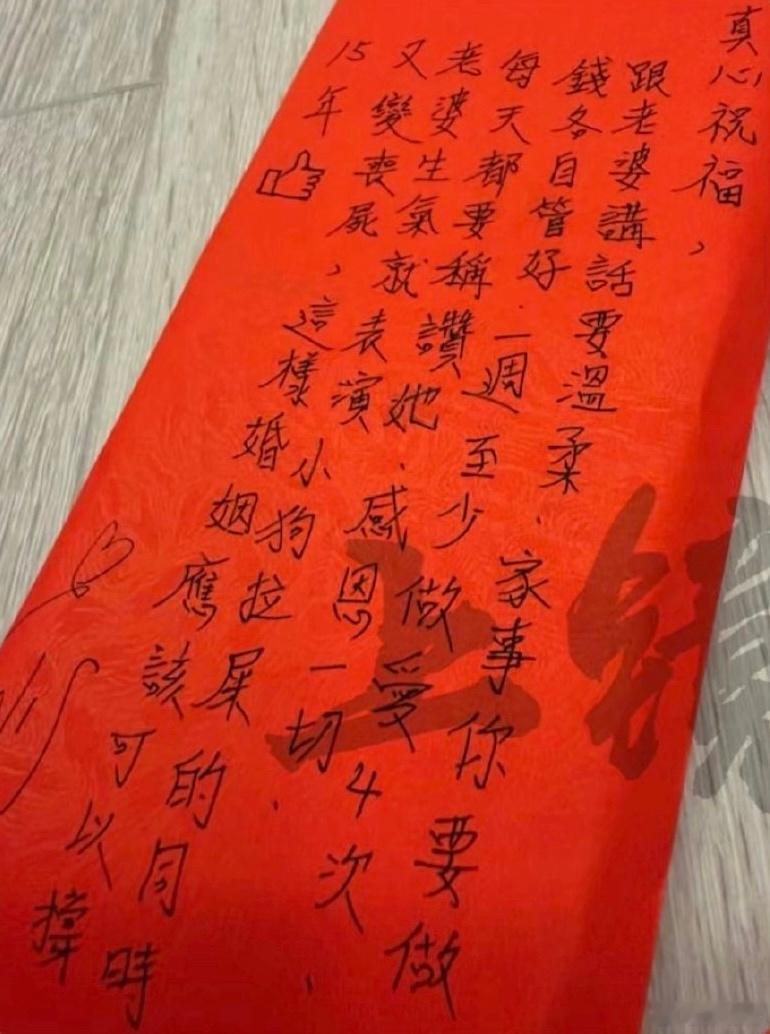 真心祝福，
跟老婆講話要溫柔、家事你要做
錢各自管好.一週至少做愛4次、
每天都要稱讚她、感恩一切、
老婆生氣就表演小狗拉屎的同時
又變喪屍，這樣婚姻應該可以撐
15年